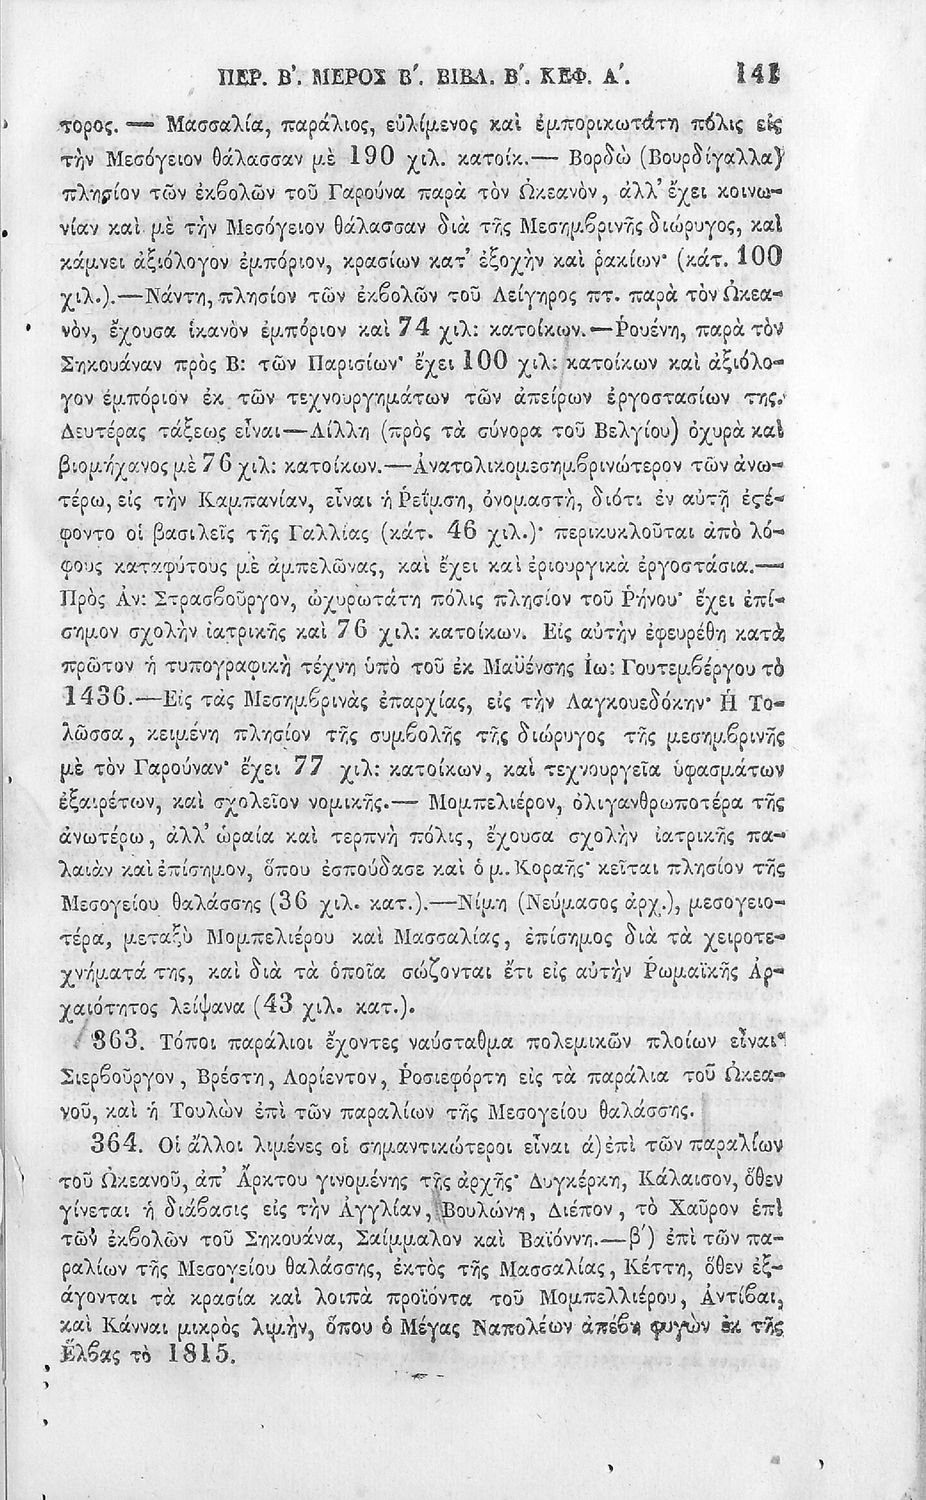 ΠΕΡ. Β'. ΜΕΡΟΣ Β'. ΒΙΒΛ. Β'. ΚΕΦ. Α'. 141
τορος. — Μασσαλία, παράλιος, εὐλίμενος καὶ ἐμπορικωτάτη πόλις εἰς
τὴν Μεσόγειον θάλασσαν μὲ 190 χιλ. κατοίκ.— Βορδὼ (Βουρδίγαλλα)
πλησίον τῶν ἐκβολῶν τοῦ Γαρούνα παρὰ τὸν Ὠκεανὸν, ἀλλ' ἔχει κοινω-
νίαν καὶ μὲ τὴν Μεσόγειον θάλασσαν διὰ τῆς Μεσημβρινῆς διώρυγος, καὶ
κάμνει ἀξιόλογον ἐμπόριον, κρασίων κατ' ἐξοχὴν καὶ ῥακίων· (κάτ. 100
χιλ.).—Νάντη, πλησίον τῶν ἐκβολῶν τοῦ Λείγηρος πτ. παρὰ τὸν Ὠκεα-
νὸν, ἔχουσα ἱκανὸν ἐμπόριον καὶ 74 χιλ: κατοίκων.—Ῥουένη, παρὰ τὸν
Σηκουάναν πρὸς Β: τῶν Παρισίων· ἔχει 100 χιλ: κατοίκων καὶ ἀξιόλο-
γον ἐμπόριον ἐκ τῶν τεχνουργημάτων τῶν ἀπείρων ἐργοστασίων της.
Δευτέρας τάξεως εἶναι—Λίλλη (πρὸς τὰ σύνορα τοῦ Βελγίου) ὀχυρὰ καὶ
βιομήχανος μὲ 76 χιλ: κατοίκων.—Ἀνατολικομεσημβρινώτερον τῶν ἀνω-
τέρω, εἰς τὴν Καμπανίαν, εἶναι ἡ Ῥεΐμση, ὀνομαστὴ, διότι ἐν αὐτῇ ἐςέ-
φοντο οἱ βασιλεῖς τῆς Γαλλίας (κάτ. 46 χιλ.)· περικυκλοῦται ἀπὸ λό-
φους καταφύτους μὲ ἀμπελῶνας, καὶ ἔχει καὶ ἐριουργικὰ ἐργοστάσια.—
Πρὸς Ἀν: Στρασβοῦργον, ὠχυρωτάτη πόλις πλησίον τοῦ Ῥήνου· ἔχει ἐπί-
σημον σχολὴν ἰατρικῆς καὶ 76 χιλ: κατοίκων. Εἰς αὐτὴν ἐφευρέθη κατὰ
πρῶτον ἡ τυπογραφικὴ τέχνη ὑπὸ τοῦ ἐκ Μαϋένσης Ἰω: Γουτεμβέργου τὸ
1436.—Εἰς τὰς Μεσημβρινὰς ἐπαρχίας, εἰς τὴν Λαγκουεδόκην· Ἡ Το-
λῶσσα, κειμένη πλησίον τῆς συμβολῆς τῆς διώρυγος τῆς μεσημβρινῆς
μὲ τὸν Γαρούναν· ἔχει 77 χιλ: κατοίκων, καὶ τεχνουργεῖα ὑφασμάτων
ἐξαιρέτων, καὶ σχολεῖον νομικῆς.— Μομπελιέρον, ὀλιγανθρωποτέρα τῆς
ἀνωτέρω, ἀλλ' ὡραία καὶ τερπνὴ πόλις, ἔχουσα σχολὴν ἰατρικῆς πα-
λαιὰν καὶ ἐπίσημον, ὅπου ἐσπούδασε καὶ ὁ μ. Κοραῆς· κεῖται πλησίον τῆς
Μεσογείου θαλάσσης (36 χιλ. κατ.).—Νίμη (Νεύμασος ἀρχ.), μεσογειο-
τέρα, μεταξὺ Μομπελιέρου καὶ Μασσαλίας, ἐπίσημος διὰ τὰ χειροτε-
χνήματά της, καὶ διὰ τὰ ὁποῖα σώζονται ἔτι εἰς αὐτὴν Ῥωμαϊκῆς Ἀρ-
χαιότητος λείψανα (43 χιλ. κατ.).
363. Τόποι παράλιοι ἔχοντες ναύσταθμα πολεμικῶν πλοίων εἶναι·
Σιερβοῦργον, Βρέστη, Λορίεντον, Ῥοσιεφόρτη εἰς τὰ παράλια τοῦ Ὠκεα-
νοῦ, καὶ ἡ Τουλὼν ἐπὶ τῶν παραλίων τῆς Μεσογείου θαλάσσης.
364. Οἱ ἄλλοι λιμένες οἱ σημαντικώτεροι εἶναι ά) ἐπὶ τῶν παραλίων
τοῦ Ὠκεανοῦ, ἀπ' Ἄρκτου γινομένης τῆς ἀρχῆς· Δυγκέρκη, Κάλαισον, ὅθεν
γίνεται ἡ διάβασις εἰς τὴν Ἀγγλίαν, Βουλώνη, Διέπον, τὸ Χαῦρον ἐπὶ
τῶν ἐκβολῶν τοῦ Σηκουάνα, Σαίμμαλον καὶ Βαϊόννη.—β') ἐπὶ τῶν πα-
ραλίων τῆς Μεσογείου θαλάσσης, ἐκτὸς τῆς Μασσαλίας, Κέττη, ὅθεν ἐξ-
άγονται τὰ κρασία καὶ λοιπὰ προϊόντα τοῦ Μομπελλιέρου, Ἀντίβαι,
καὶ Κάνναι μικρὸς λιμὴν, ὅπου ὁ Μέγας Ναπολέων ἀπέβη φυγὼν ἐκ τῆς
Ἔλβας τὸ 1815.